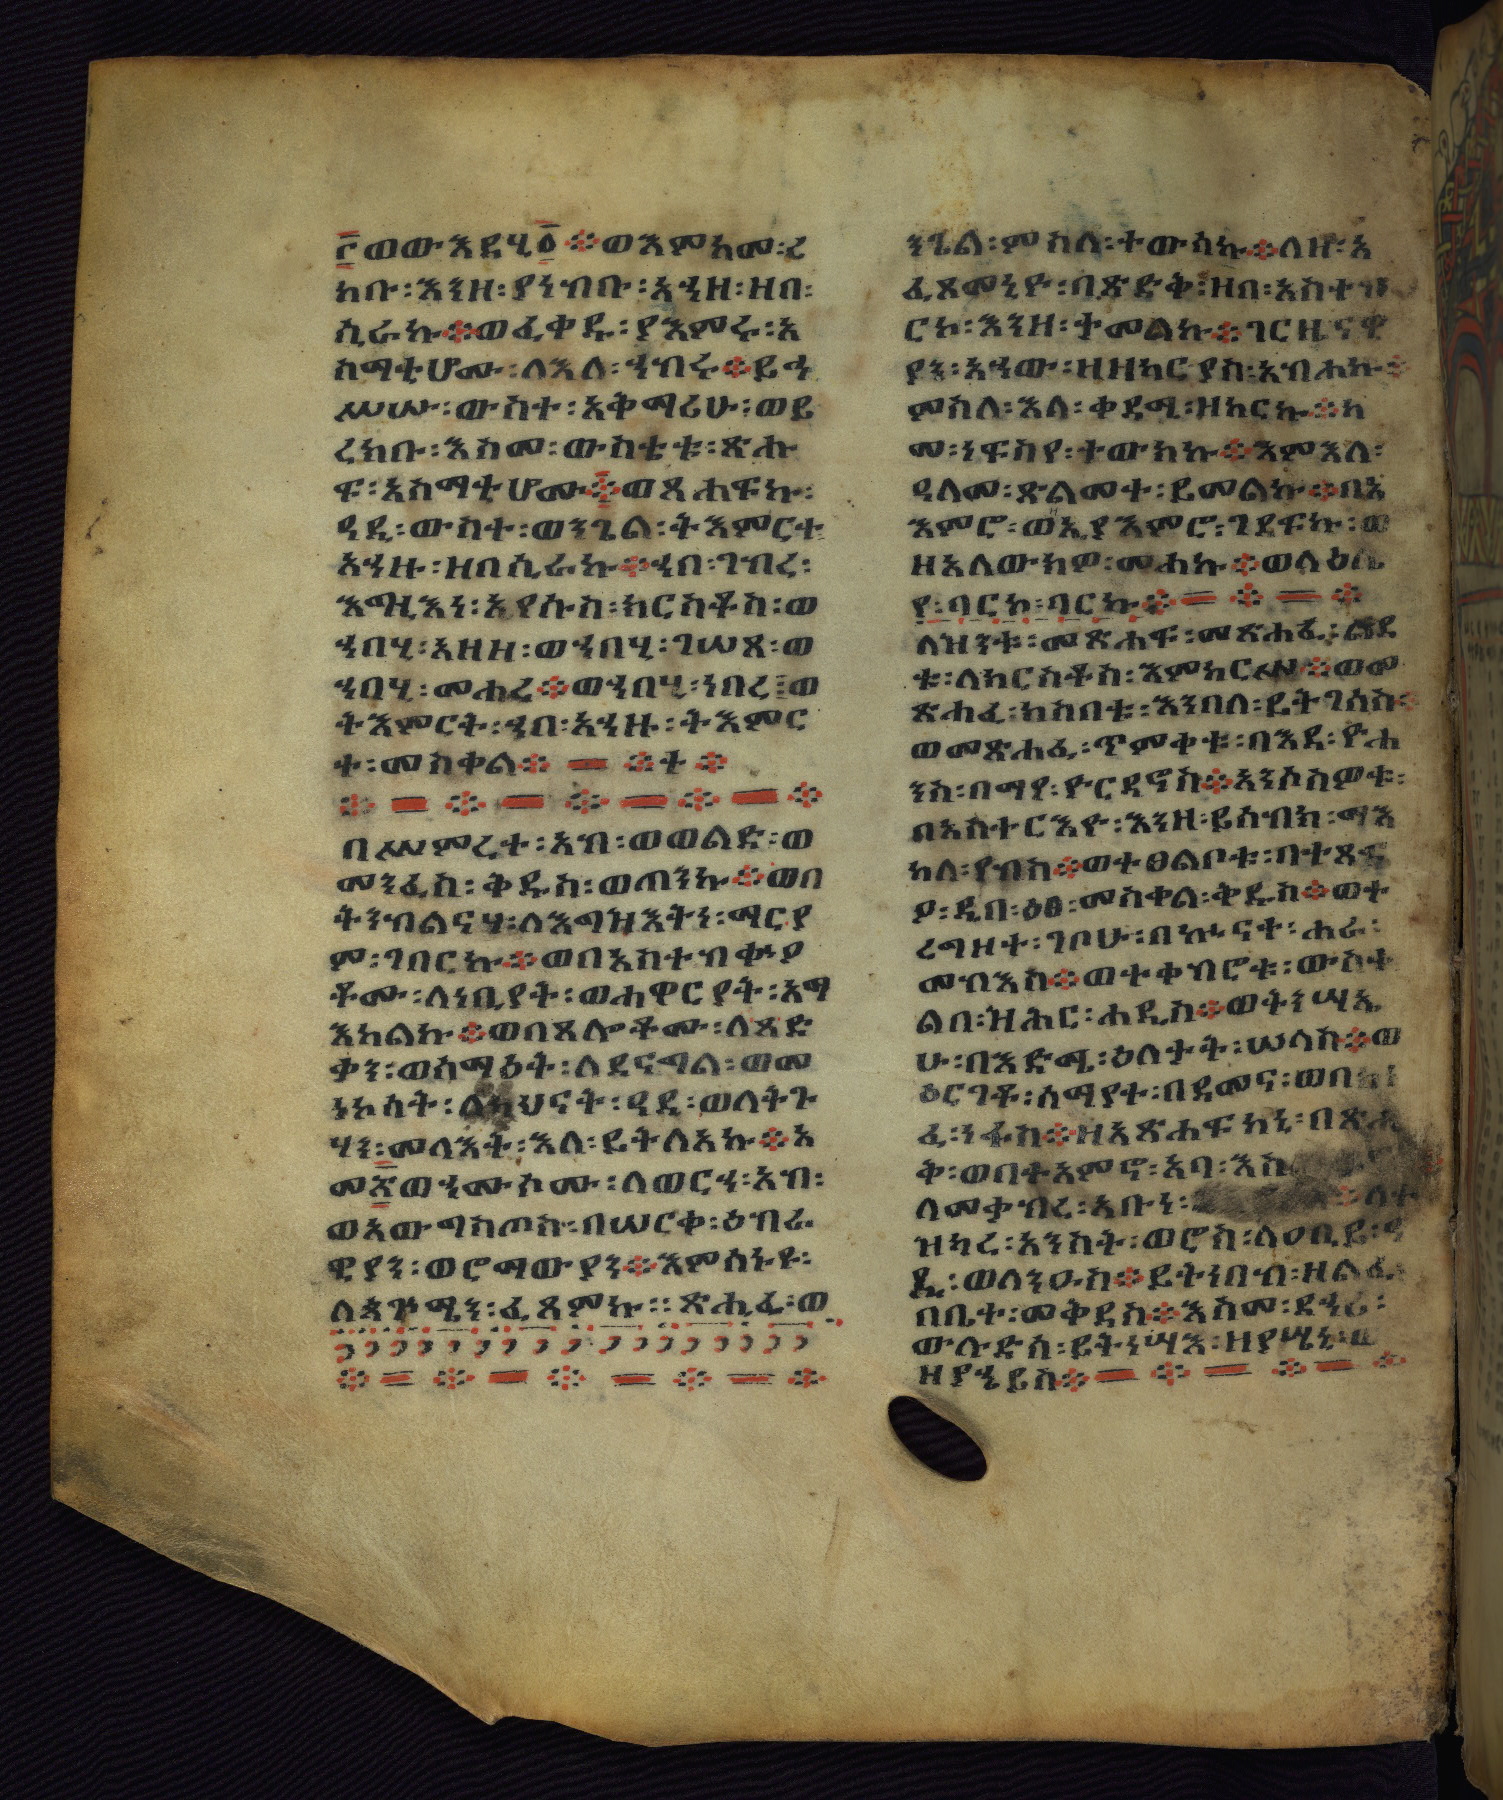 ፫ወው እደሂ፩ ። ወእምከመ ፡ ረ
ከቡ ፡ እንዘ ፡ ያነብቡ ፡ አኀዘ ፡ ዘበ ፡
ሲራኩ ። ወፈቀዱ ፡ ያእምሩ ፡ አ
ስማቲሆሙ ፡ ለእለ ፡ ኀብሩ ። ይኀ
ሥሡ ፡ ውስተ ፡ አቅማሪሁ ፡ ወይ
ረከቡ ፡ እስመ ፡ ውስቴቱ ፡ ጽሑ
ፍ ፡ አስማቲሆሙ ። ወጸሐፍኩ ፡
ዲዲ ፡ ውስተ ፡ ወንጌል ፡ ትእምርተ
አኀዙ ፡ ዘበሲራኩ ። ኀበ ፡ ገብረ ፡
እግዚእነ ፡ ኢየሱስ ፡ ክርስቶስ ፡ ወ
ኀበሂ ፡ አዘዘ ፡ ወኀበሂ ፡ ገሠጸ ፡ ወ
ኀበሂ ፡ መሐረ ። ወኀበሂ ፡ ነበረ ፡ ወ
ትእምርት ፡ ኀበ ፡ አኀዙ ፡ ትእምር
ተ ፡ መስቀል ። ተ ።
በሥምረተ ፡ አብ ፡ ወወልድ ፡ ወ
መንፈስ ፡ ቅዱስ ፡ ወጠንኩ ። ወበ
ትንብልናሃ ፡ ለእግዝእትነ ፡ ማርያ
ም ፡ ገበርኩ ። ወበአስተብቍዖ
ቶሙ ፡ ለነቢያት ፡ ወሐዋርያት ፡ አግ
እከልኩ ። ወበጸሎቶሙ ፡ ለጻድ
ቃን ፡ ወሰማዕት ፡ ለደናግል ፡ ወመ
ነኮሳት ፡ ለካህናት ፡ ዲዲ ፡ ወለትጉ
ሃን ፡ መላእት ፡ እለ ፡ ይትለአኩ ። አ
መ፳ወኀሙሶሙ ፡ ለወርኀ ፡ አብ ፡
ወአውግስጦስ ፡ በሠርቀ ፡ ዕብራ
ዊያን ፡ ወሮማውያን ። እምሰኑዩ ፡
ለጳጕሜን ፡ ፈጸምኩ ። ጽሒፈ ፡ ወ
ንጌል ፡ ምስለ ፡ ተውሳኩ ። ለዙ ፡ እ
ፊጸመኒዮ ፡ በጽድቅ ፡ ዘበ ፡ አስተብ
ርኮ ፡ እንዘ ፡ ተመልኩ ። ገርዜናዊ
ያን ፡ አኀው ፡ ዘዘካርያስ ፡ አብሐኩ ።
ምስለ ፡ እለ ፡ ቀዳሚ ፡ ዘከርኩ ። ከ
መ ፡ ነፍስየ ፡ ተውክኩ ። እምእለ ፡
ዲለመ ፡ ጽልመተ ፡ ይመልኩ ። በአ
እምሮ ፡ ወኢያእምሮ ፡ ገደፍኩ ፡ ወ
የ ፡ ባርኮ ፡ ባርኩ ።
ለዝንቱ ፡ መጽሐፍ ፡ መጽሐፈ ፡ ልደ
ቱ ፡ ለክርስቶስ ፡ እምከርሥ ። ወመ
ጽሐፈ ፡ ከስበቱ ፡ እንበለ ፡ ይትገሰስ ።
ወመጽሐፈ ፡ ጥምቀቱ ፡ በእደ ፡ ዮሐ
ንስ ፡ በማየ ፡ ዮርዳኖስ ። አንሶስዎቱ ፡
በአስተርእዮ ፡ እንዘ ፡ ይሰብክ ፡ ማእ
ከለ ፡ የብስ ። ወተፀልቦቱ ፡ በተጸና
ዖ ፡ ዲበ ፡ ዕፀ ፡ መስቀል ፡ ቅዱስ ። ወተ
ረግዘተ ፡ ገቦሁ ፡ በኲናተ ፡ ሐራ ፡
መብእስ ። ወተቀብሮቱ ፡ ውስተ
ልበ ፡ ዝሕር ፡ ሐዲስ ። ወትንሣኤ
ሁ ፡ በእድሜ ፡ ዕለታት ፡ ሠላስ ። ወ
ዕርገቶ ፡ ሰማያተ ፡ በደመና ፡
ፈ ፡ ነፋስ ። ዘአጽሐፍከኒ ፡
ቅ ፡ ወበተአምኖ ፡ አባ ፡
ለመቃብረ ፡ አቡነ ፡
ዝካረ ፡ አንስት ፡ ወሮስ ፡ ለዐቢይ ፡
ዴ ፡ ወለንዑስ ። ይትነበብ ፡ ዘልፈ
በቤተ ፡ መቅደስ ። እስመ ፡ ደኃሪ ፡
ውሉድስ ፡ ይትነሣእ ፡ ዘያሤኒ ፡ ወ
ዘያኄይስ ።